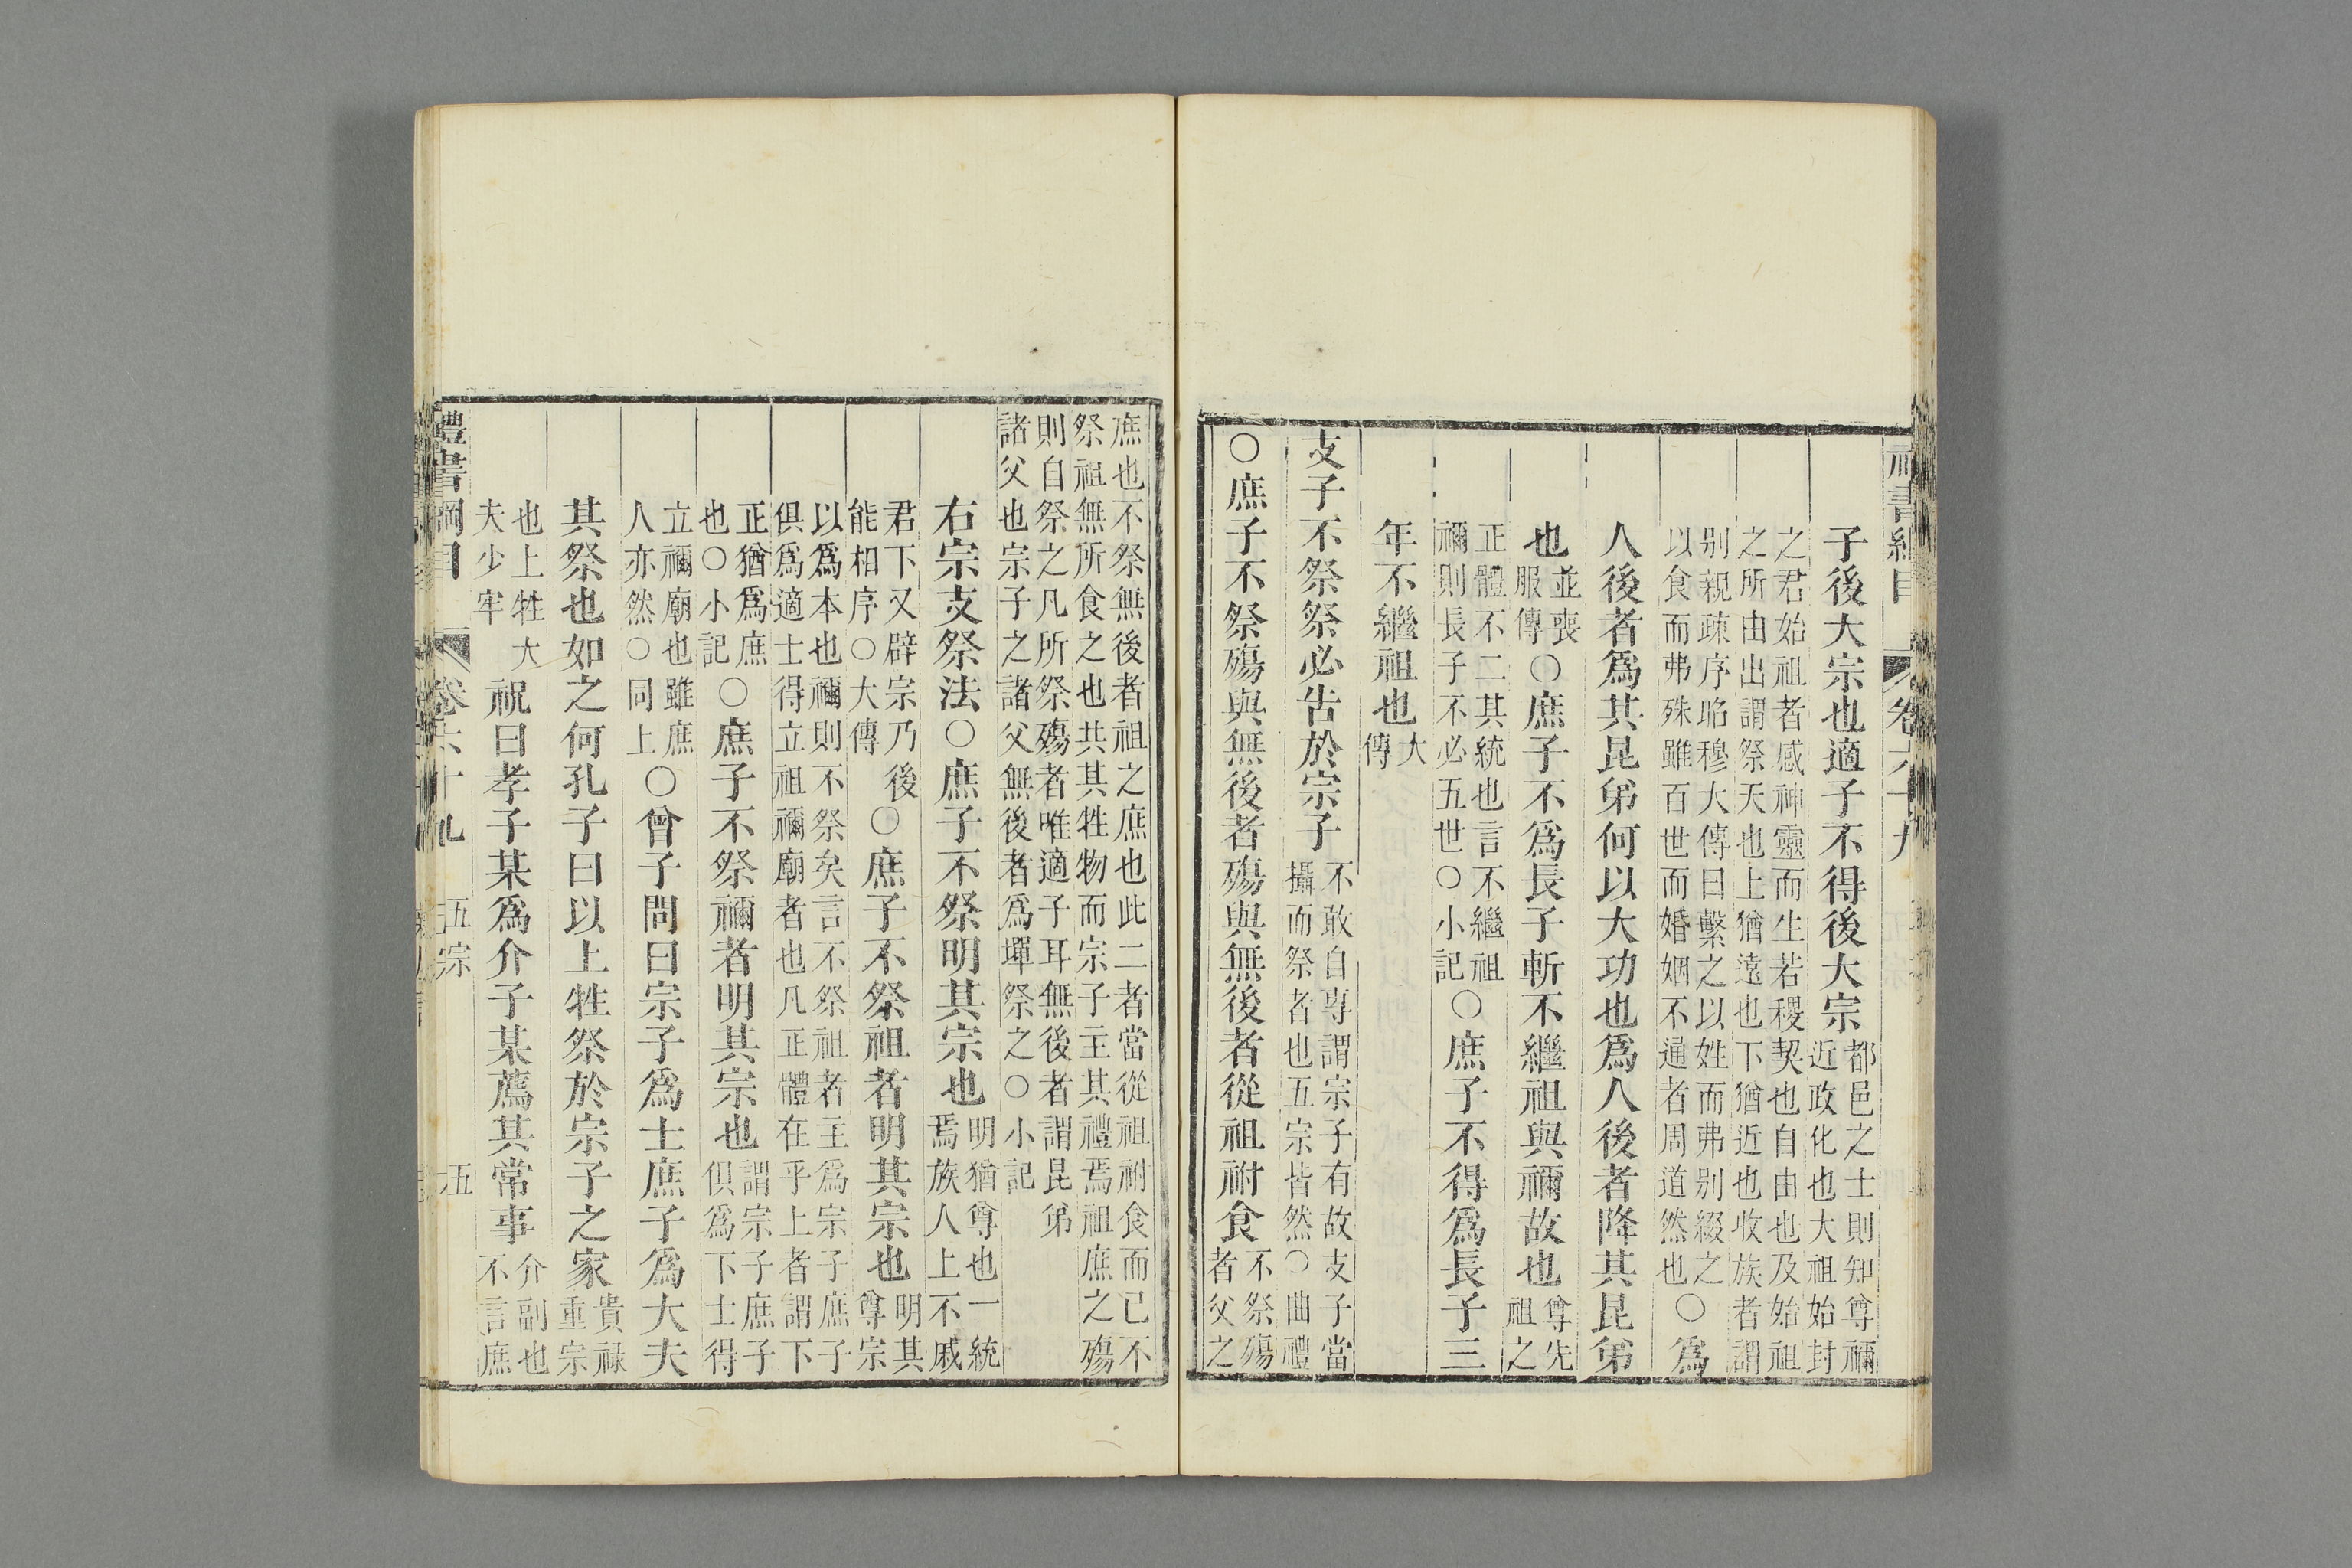 禮書綱目 卷六十九
子後大宗也適子不得後大宗都邑之士則知尊禰近政化也大祖始封
之君始祖者感神靈而生若稷契也自由也及始祖之所由出謂祭天也上猶遠也下猶近也收族者謂
別親疎序昭穆大傳曰繫之以姓而弗別綴之以食而弗殊雖百世而婚姻不通者周道然也○爲
人後者爲其昆弟何以大功也爲人後者降其昆弟
也並喪服傳○庶子不爲長子斬不繼祖與禰故也尊先祖之
正體不二其統也言不繼祖禰則長子不必五世○小記○庶子不得爲長子三
年不繼祖也大傳
支子不祭祭必告於宗子不敢自專謂宗子有故支子當攝而祭者也五宗皆然○曲禮
○庶子不祭殤與無後者殤與無後者從祖祔食不祭殤者父之
庶也不祭無後者祖之庶也此二者當從祖祔食而已不祭祖無所食之也共其牲物而宗子主其禮焉祖庶之殤
則自祭之凡所祭殤者唯適子耳無後者謂昆弟諸父也宗子之諸父無後者爲墠祭之○小記
右宗支祭法○庶子不祭明其宗也明猶尊也一統焉族人上不戚
君下又辟宗乃後能相序○大傳○庶子不祭祖者明其宗也明其尊宗
以爲本也禰則不祭矣言不祭祖者主爲宗子庶子俱爲適士得立祖禰廟者也凡正體在乎上者謂下
正猶爲庶也○小記○庶子不祭禰者明其宗也謂宗子庶子俱爲下士得
立禰廟也雖庶人亦然○同上○曾子問曰宗子爲士庶子爲大夫
其祭也如之何孔子曰以上牲祭於宗子之家貴祿重宗
也上牲大夫少牢祝曰孝子某爲介子某薦其常事介副也不言庶
禮書綱目 卷六十九 五宗 五